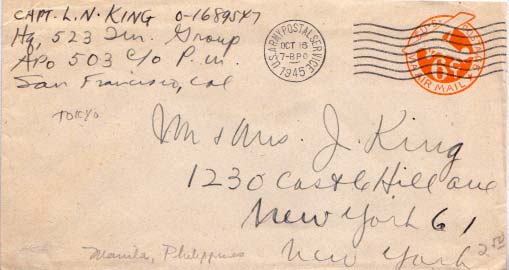 CAPT. L. N. KING 0-1689547
Hq, 523 Qm. Group
APO 503 c/o P.M.
San Francisco, Cal
TOKYO
U.S. ARMY POSTAL SERVICE
OCT 16
7-BPO
1945
6¢
VIA AIR MAIL
Mr & Mrs. J. King
1230 Castle Hill ave
New York 61
New York
2.50
Manila, Philippines